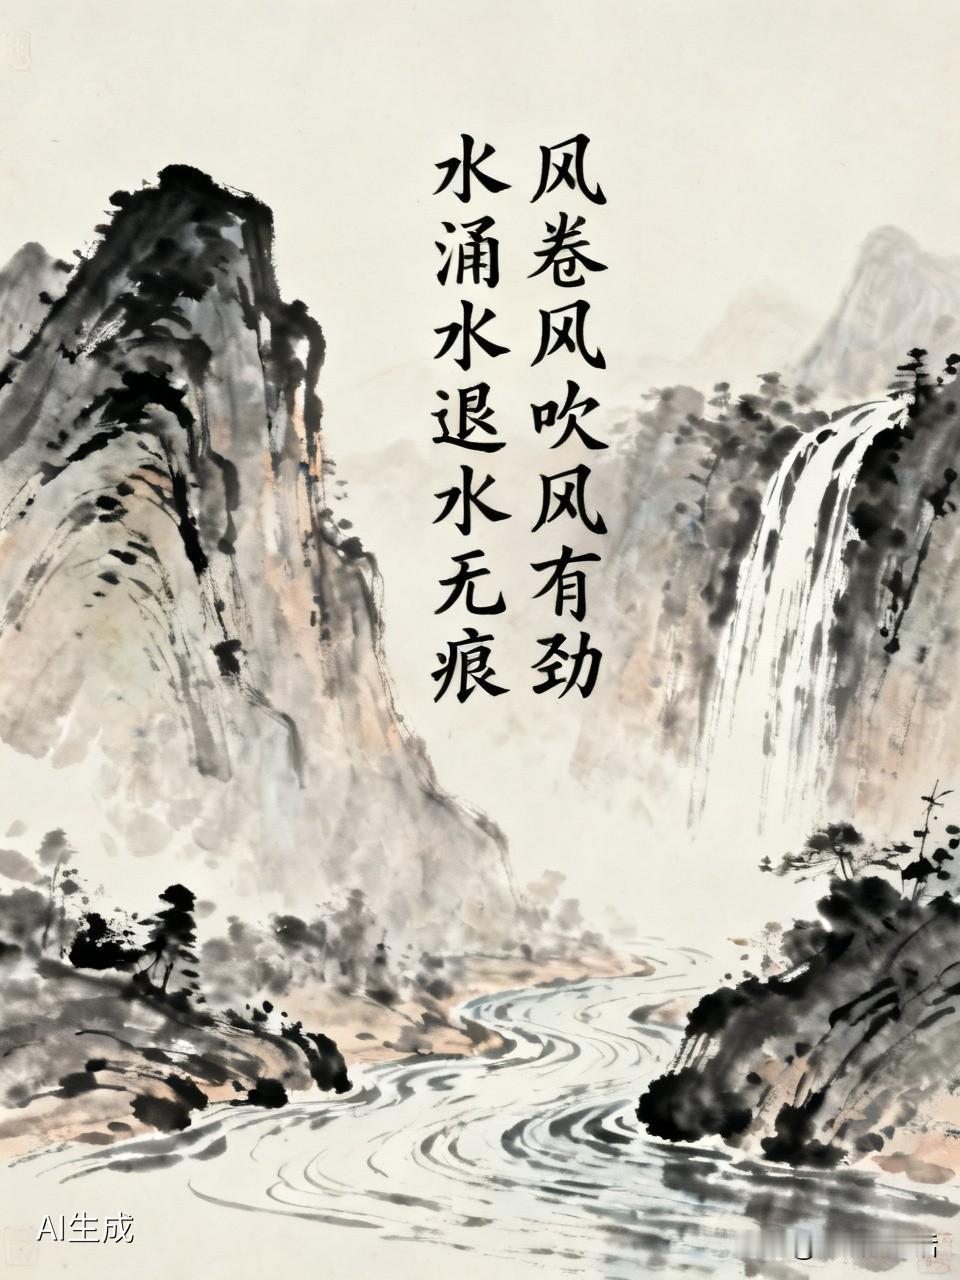 风卷风吹风有劲
水涌水退水无痕
AI生成